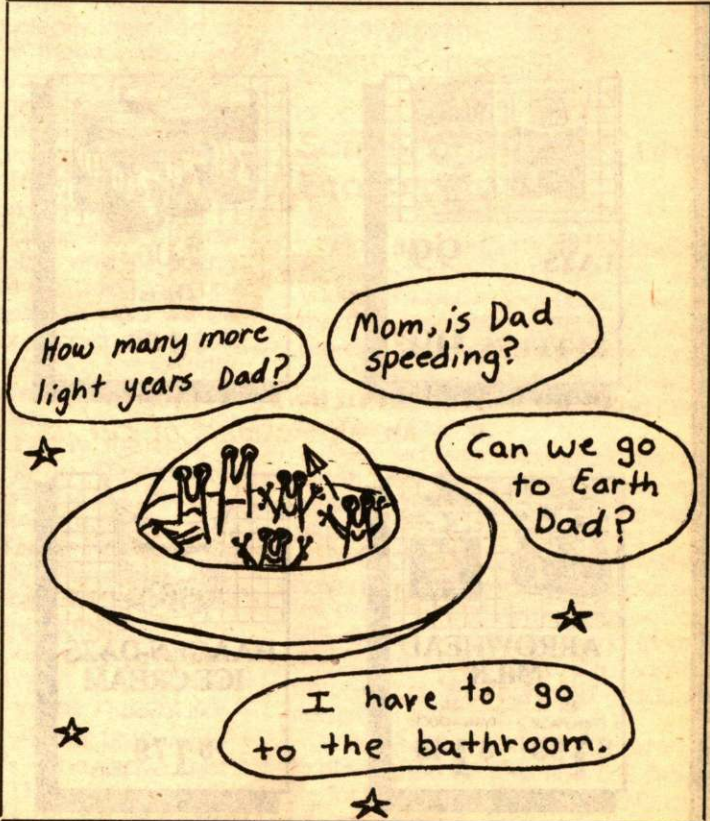 How many more
light years Dad?
Mom, is Dad
speeding?
Can we go
to Earth
Dad?
I have to go
to the bathroom.